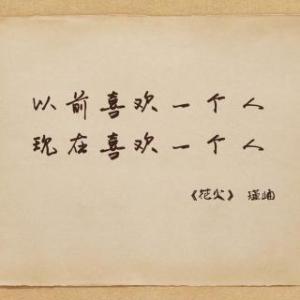 以前喜欢一个人
现在喜欢一个人
《花火》 瑾崎